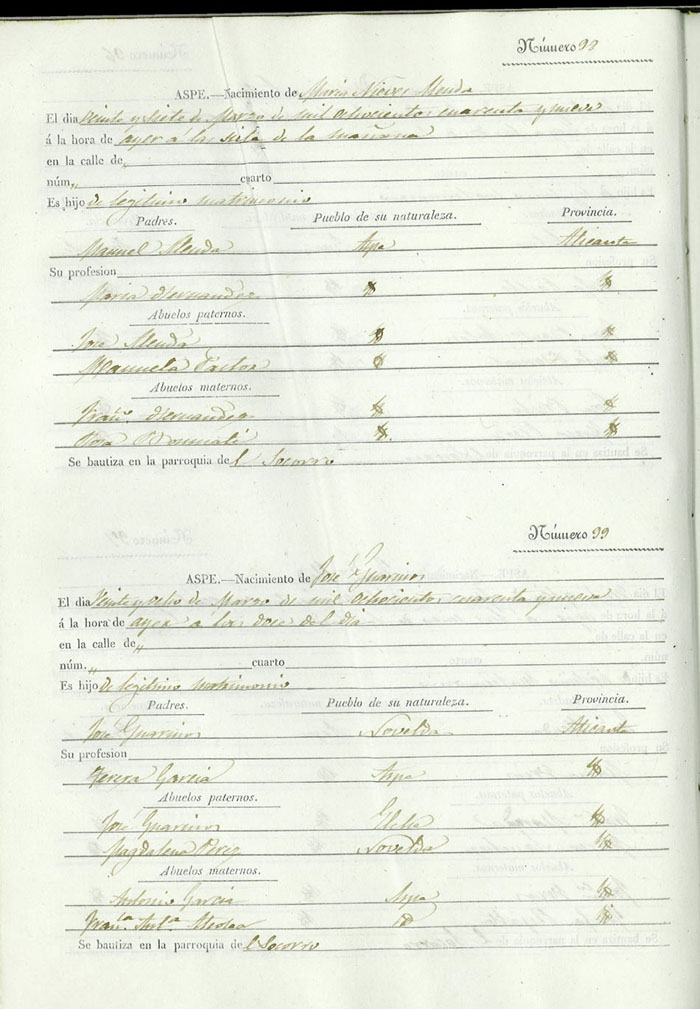 Número 98
ASPE.—Nacimiento de Maria Nieves Menda
El dia Veinte y siete de Marzo de mil ochocientos cuarenta y nueve
á la hora de ayer á las siete de la mañana
en la calle de „
núm. „ cuarto
Es hijo de legitimo matrimonio
Padres. Pueblo de su naturaleza. Provincia.
Manuel Aspe Alicante
Su profesion
Maria Hernandez
Abuelos paternos.
José
Manuela Pastor
Abuelos maternos.
Fran.co Hernandez
Rosa
Se bautiza en la parroquia de l Socorro
Número 99
ASPE.—Nacimiento de José Guarinos
El dia Veinte y ocho de Marzo de mil ochocientos cuarenta y nueve
á la hora de ayer a las doce del dia
en la calle de „
núm. „ cuarto
Es hijo de legitimo matrimonio
Padres. Pueblo de su naturaleza. Provincia.
José Guarinos Novelda Alicante
Su profesion
Teresa Garcia Aspe
Abuelos paternos.
José Guarinos Elche
Magdalena Perez Novelda
Abuelos maternos.
Antonio Garcia Aspe
Fran.ca Ant.a
Se bautiza en la parroquia de l Socorro